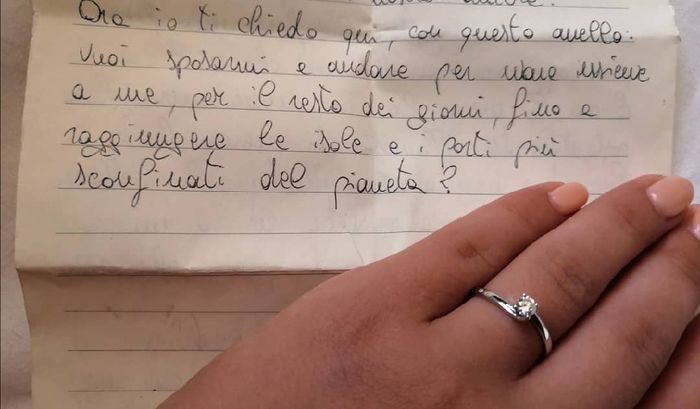 Ora io ti chiedo qui, con questo anello:
vuoi sposarmi e andare per mare insieme
a me, per il resto dei giorni, fino a
raggiungere le isole e i porti più
sconfinati del pianeta?